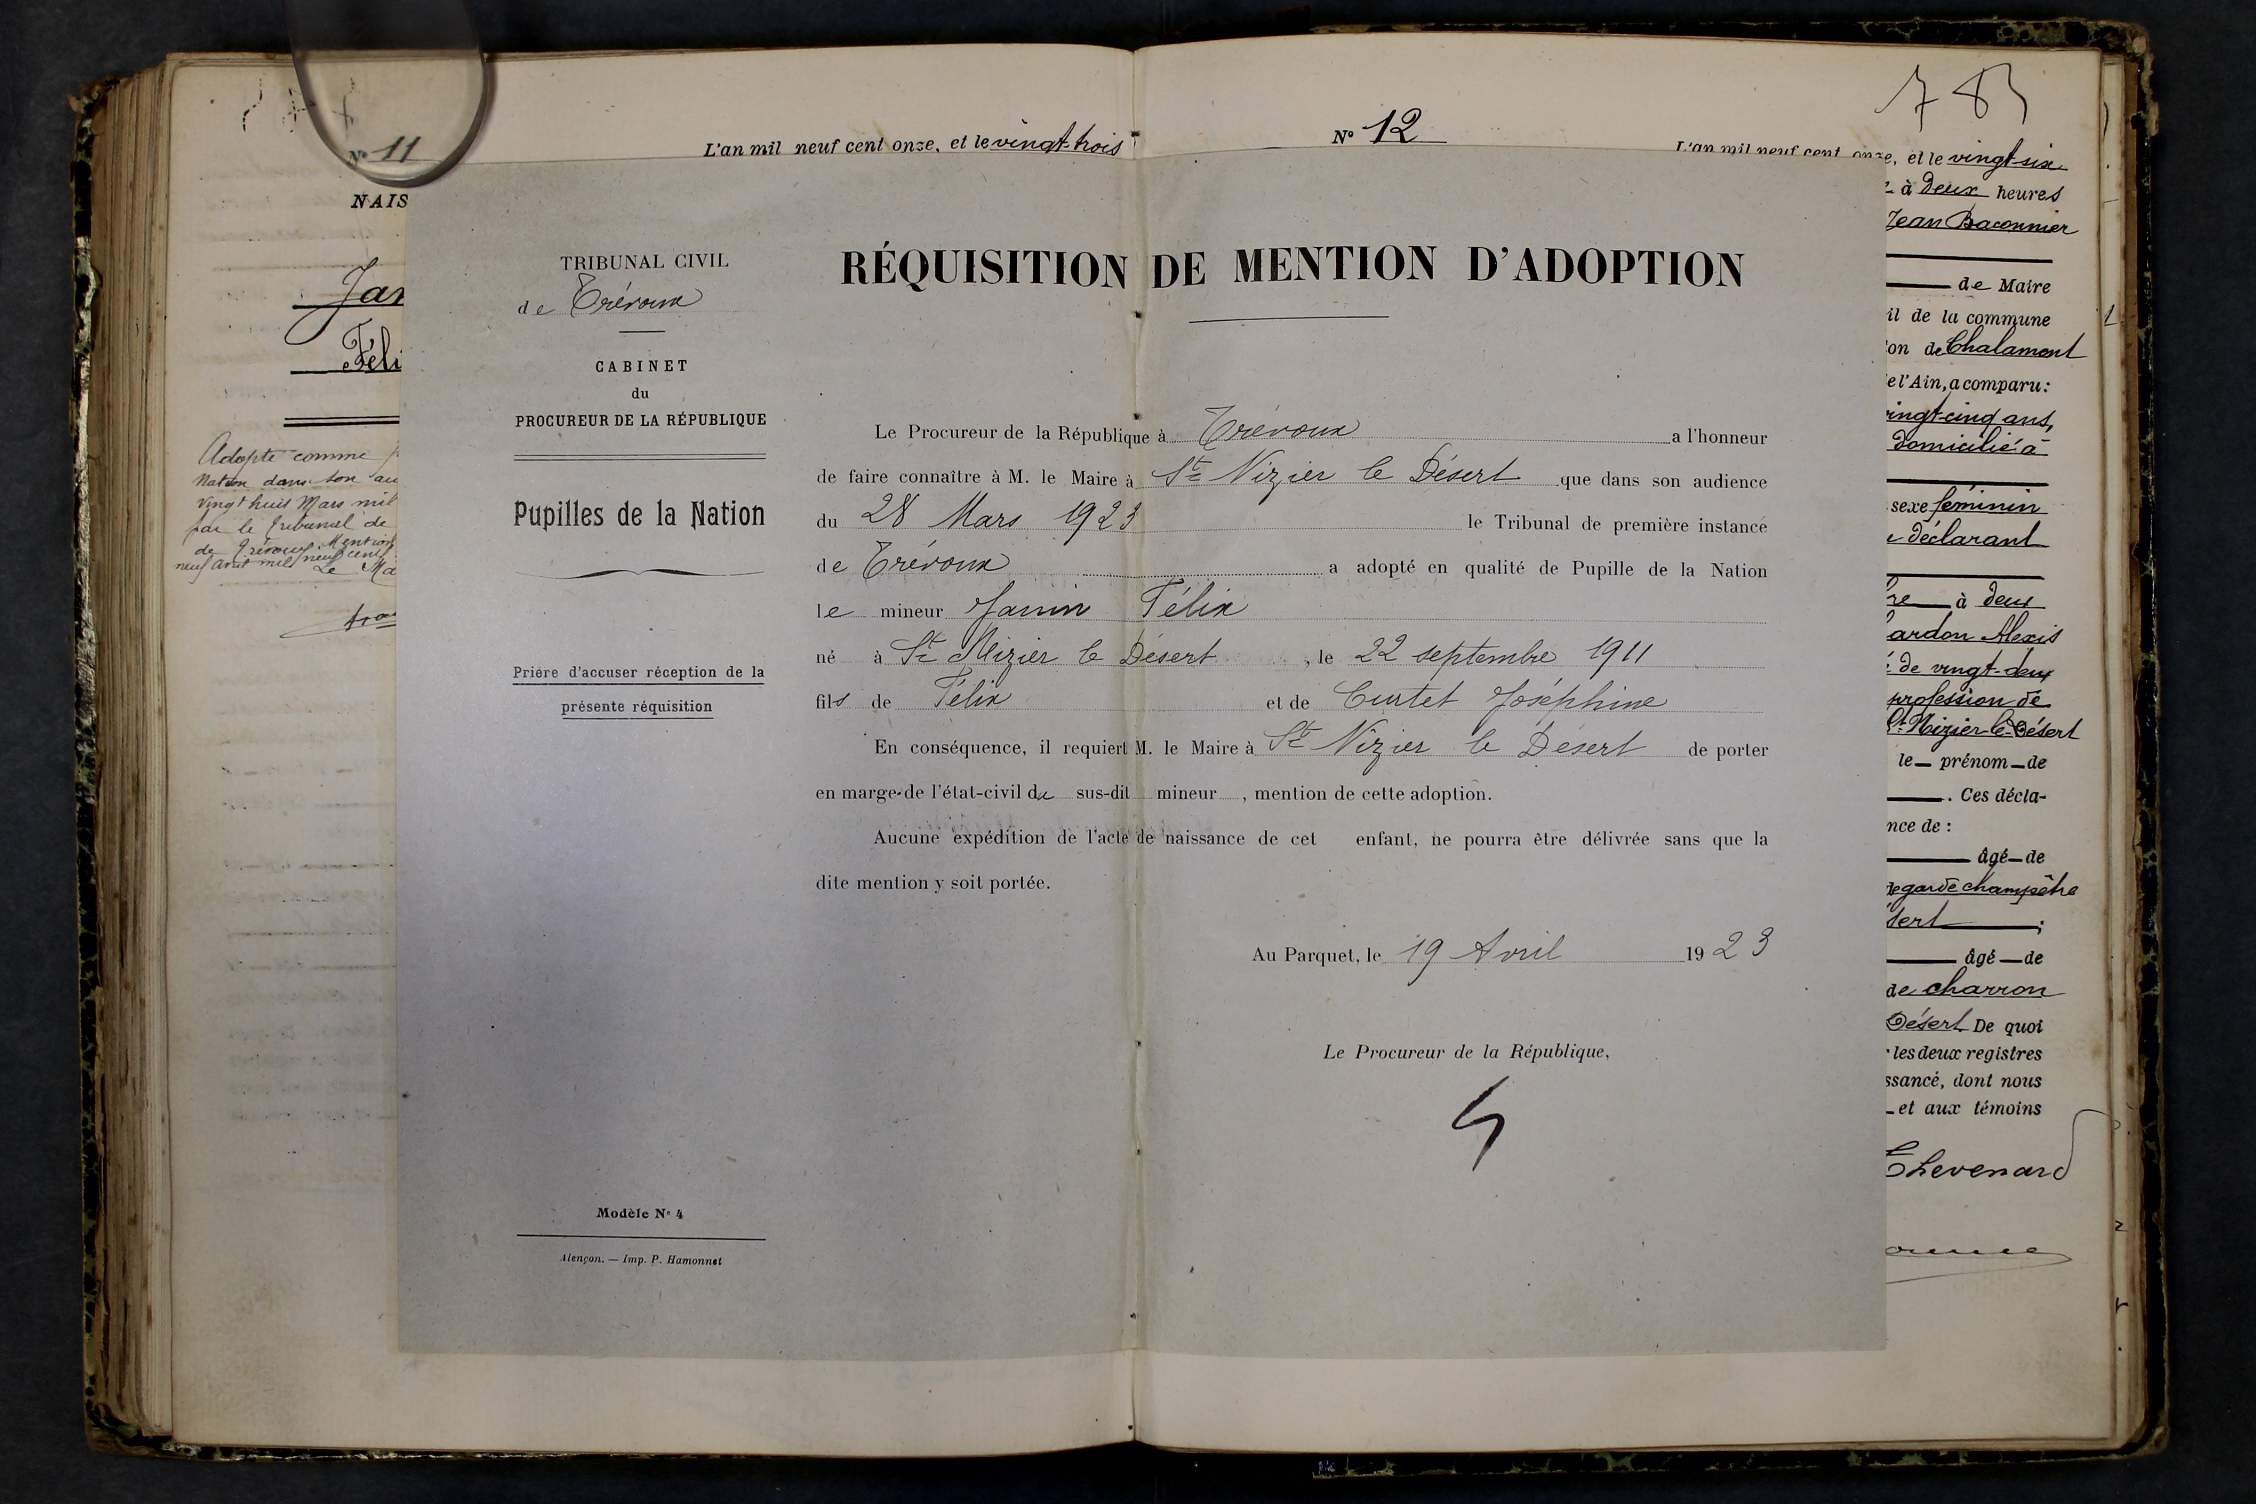 783
N° 11
L'an mil neuf cent onze, et le vingt-trois
NAIS
Jan
Féli
Adopté comme
Nation dans son au
vingt huit Mars mil
par le Tribunal de
de Trévoux Mention
neuf avril mil neuf cent
Le Ma
TRIBUNAL CIVIL
de Trévoux
CABINET
du
PROCUREUR DE LA RÉPUBLIQUE
Pupilles de la Nation
Prière d'accuser réception de la
présente réquisition
Modèle N° 4
Alençon. — Imp. P. Hamonnet
RÉQUISITION DE MENTION D'ADOPTION
Le Procureur de la République à Trévoux a l'honneur
de faire connaître à M. le Maire à St Nizier le Désert que dans son audience
du 28 Mars 1923 le Tribunal de première instance
de Trévoux a adopté en qualité de Pupille de la Nation
le mineur Janin Félix
né à St Nizier le Désert, le 22 septembre 1911
fils de Félix et de Curtet Joséphine
En conséquence, il requiert M. le Maire à St Nizier le Désert de porter
en marge de l'état-civil du sus-dit mineur, mention de cette adoption.
Aucune expédition de l'acte de naissance de cet enfant, ne pourra être délivrée sans que la
dite mention y soit portée.
Au Parquet, le 19 Avril 1923
Le Procureur de la République,
N° 12
L'an mil neuf cent onze, et le vingt-six
à Deux heures
Jean Baconnier
de Maire
il de la commune
on de Chalamont
e l'Ain, a comparu :
ingt-cinq ans,
domicilié à
sexe féminin
déclarant
re à deux
ardon Alexis
de vingt-deux
profession de
St Nizier-le-Désert
le prénom de
. Ces décla-
nce de :
âgé de
garde champêtre
sert ;
âgé de
de charron
Désert De quoi
les deux registres
ssance, dont nous
et aux témoins
Thevenard